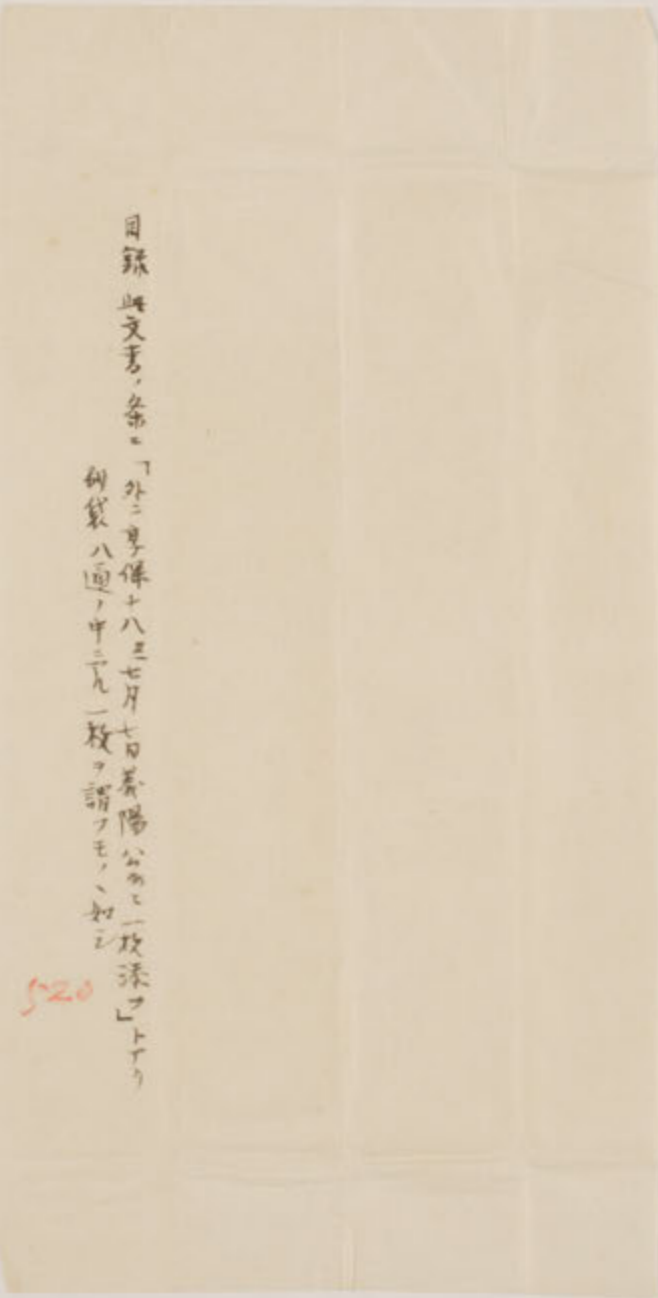 目録此文書ノ条ニ「外ニ享保十八三七月七日義陽公ゟ之一枚添フ」トアリ
別袋八通ノ中ニアル一枚ヲ謂フモノヽ如シ
520